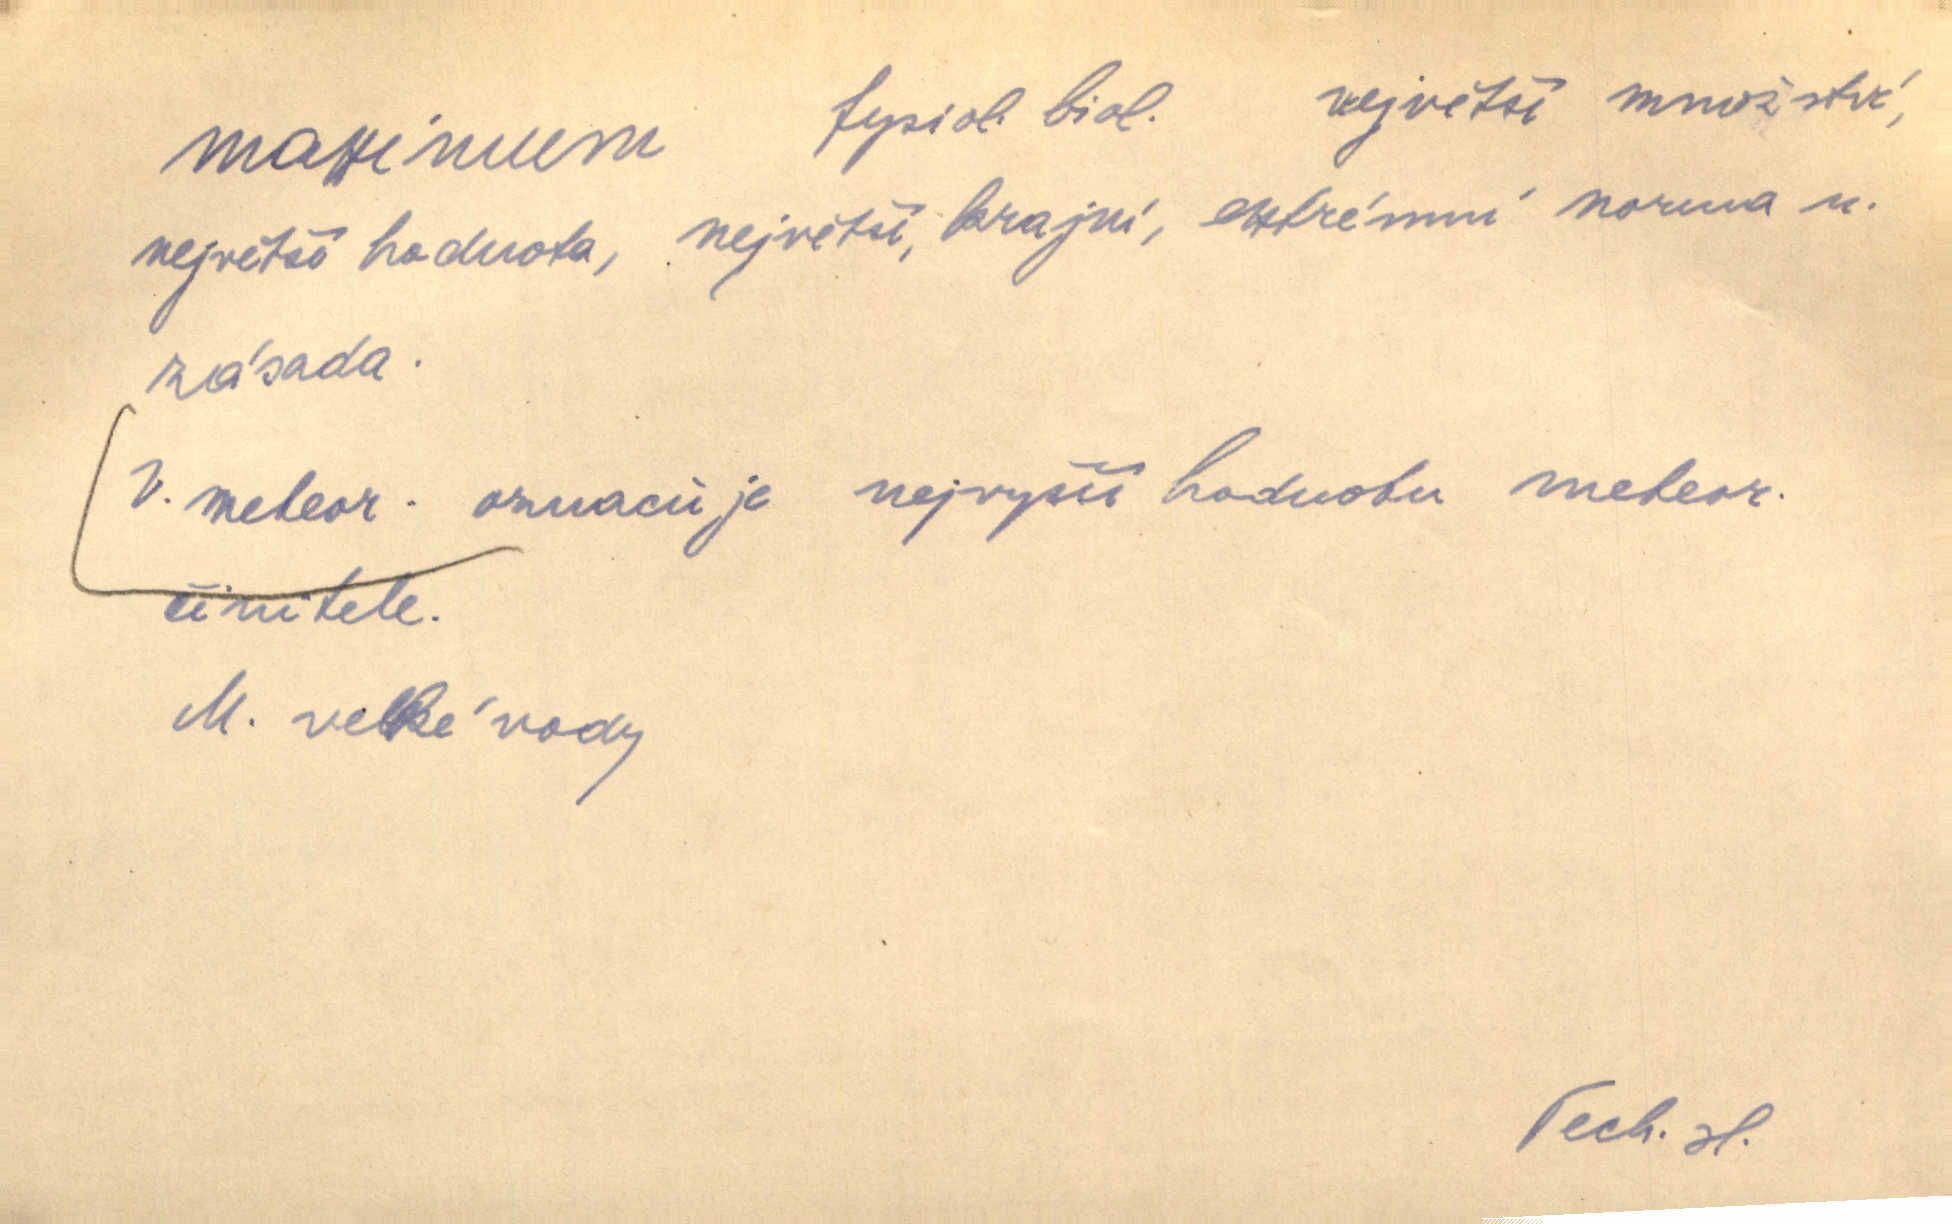 maximum fysiol. biol. největší množství,
největší hodnota, největší, krajní, extrémní norma n.
zásada.
V. meteor. označuje nejvyšší hodnotu meteor.
činitele.
M. velké vody
Tech. sl.